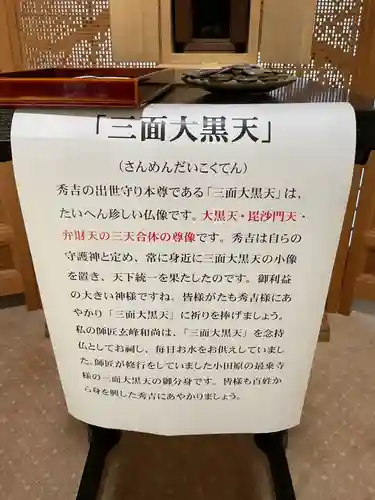 「三面大黒天」
（さんめんだいこくてん）
秀吉の出世守り本尊である「三面大黒天」は、
たいへん珍しい仏像です。大黒天・毘沙門天・
弁財天の三天合体の尊像です。秀吉は自らの
守護神と定め、常に身近に三面大黒天の小像
を置き、天下統一を果たしたのです。御利益
の大きい神様ですね。皆様がたも秀吉様にあ
やかり「三面大黒天」に祈りを捧げましょう。
私の師匠玄峰和尚は、「三面大黒天」を念持
仏としてお祠し、毎日お水をお供えしていまし
た。師匠が修行をしていました小田原の最乗寺
様の三面大黒天の御分身です。皆様も百姓か
ら身を興した秀吉にあやかりましょう。